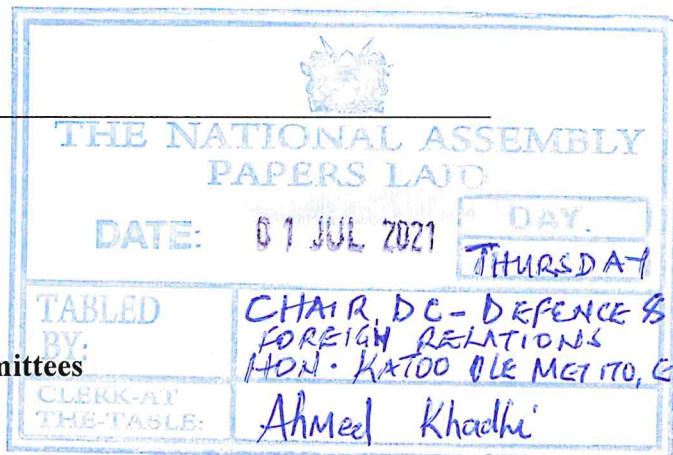 THE NATIONAL ASSEMBLY
PAPERS LAID
DATE: 01 JUL 2021 DAY.
THURSDAY
TABLED BY: CHAIR, DC - DEFENCE &
FOREIGN RELATIONS
HON. KATOO OLE METITO,
mittees
CLERK-AT THE-TABLE: Ahmed Khadhi